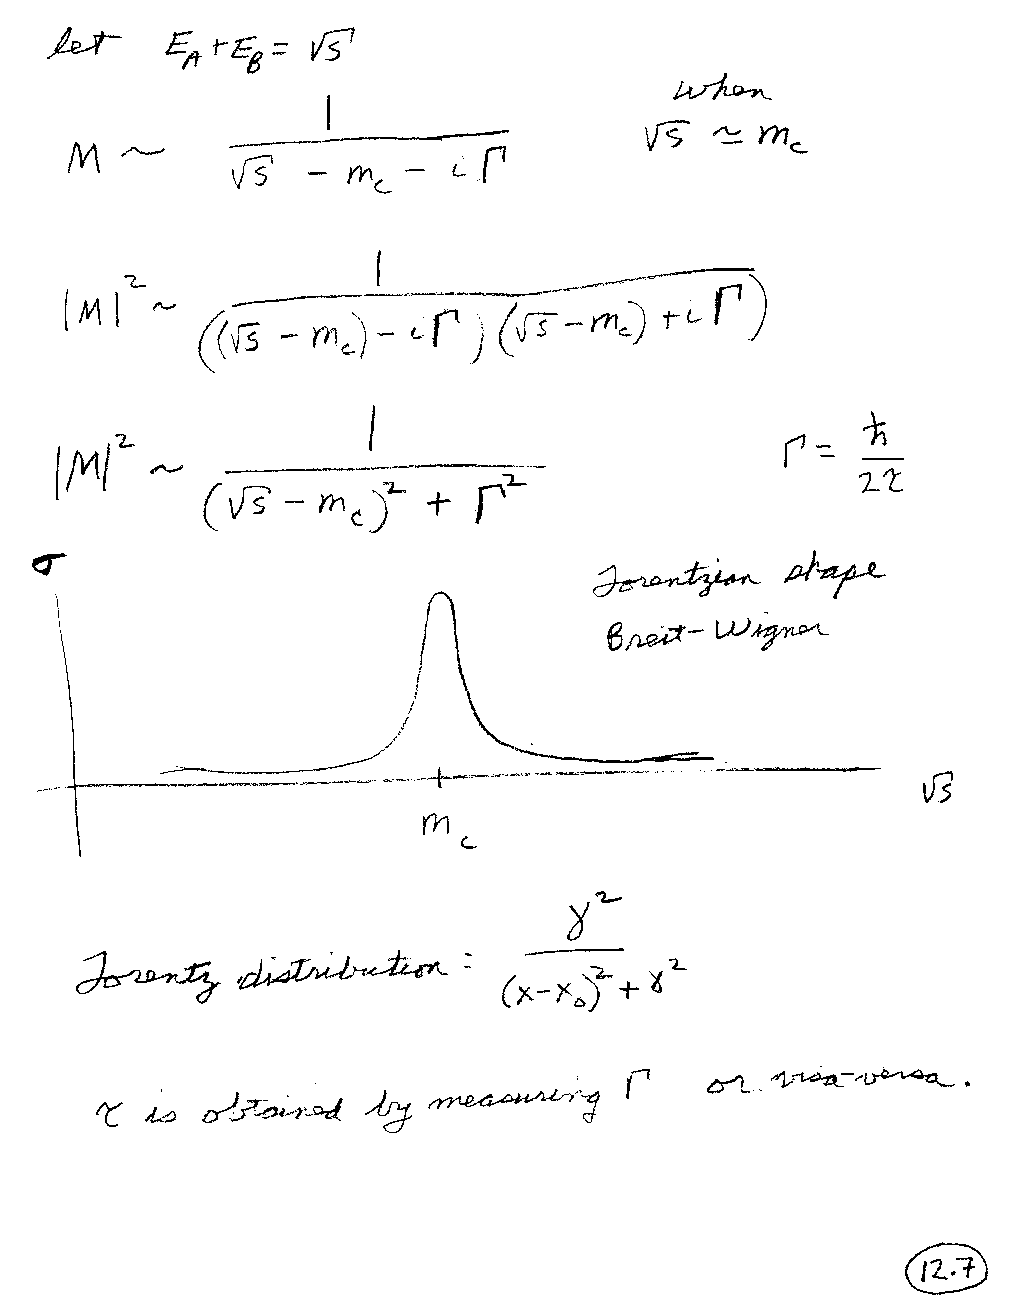 let E_A + E_B = √s
when
M ~ 1 / (√s - m_c - iΓ) √s ≃ m_c
|M|² ~ 1 / (((√s - m_c) - iΓ)(√s - m_c) + iΓ)
|M|² ~ 1 / ((√s - m_c)² + Γ²) Γ = ħ / 2τ
σ
Lorentzian shape
Breit-Wigner
√s
m_c
Lorentz distribution: γ² / ((x-x₀)² + γ²)
τ is obtained by measuring Γ or visa-versa.
12.7